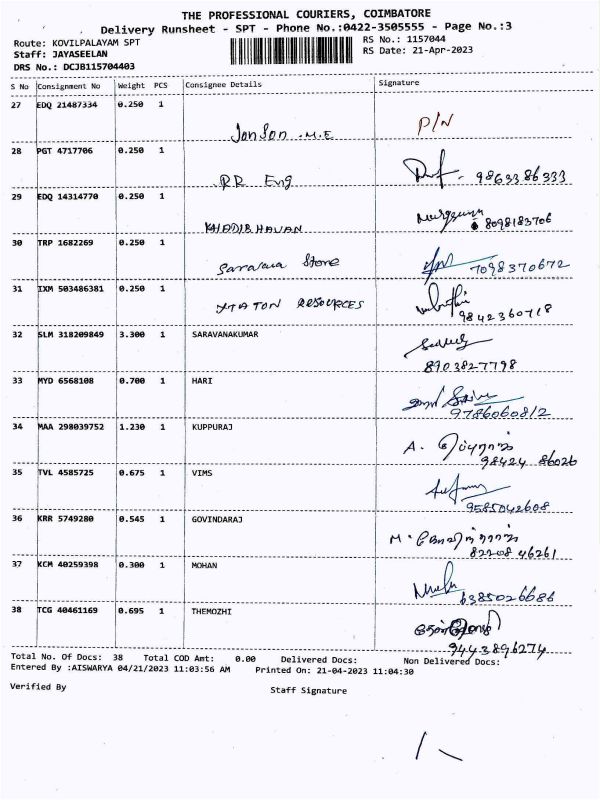 THE PROFESSIONAL COURIERS, COIMBATORE
Delivery Runsheet - SPT - Phone No.:0422-3505555 - Page No.:3
Route: KOVILPALAYAM SPT
Staff: JAYASEELAN
DRS No.: DCJB115704403
RS No.: 1157044
RS Date: 21-Apr-2023
S No Consignment No Weight PCS Consignee Details Signature
27 EDQ 21487334 0.250 1
Jonson M.E P/N
28 PGT 4717706 0.250 1
RR Eng 9863386333
29 EDQ 14314770 0.250 1
KHADIBHAVAN 8098183706
30 TRP 1682269 0.250 1
Saravana Store 7098370672
31 IXM 503486381 0.250 1
RESOURCES 9842360718
32 SLM 318209849 3.300 1 SARAVANAKUMAR
8903827798
33 MYD 6568108 0.700 1 HARI
9786060812
34 MAA 298039752 1.230 1 KUPPURAJ
A.
98424 86026
35 TVL 4585725 0.675 1 VIMS
9585042608
36 KRR 5749280 0.545 1 GOVINDARAJ
M.
82208 46261
37 KCM 40259398 0.300 1 MOHAN
6385026686
38 TCG 40461169 0.695 1 THEMOZHI
9443896274
Total No. Of Docs: 38 Total COD Amt: 0.00 Delivered Docs: Non Delivered Docs:
Entered By :AISWARYA 04/21/2023 11:03:56 AM Printed On: 21-04-2023 11:04:30
Verified By Staff Signature